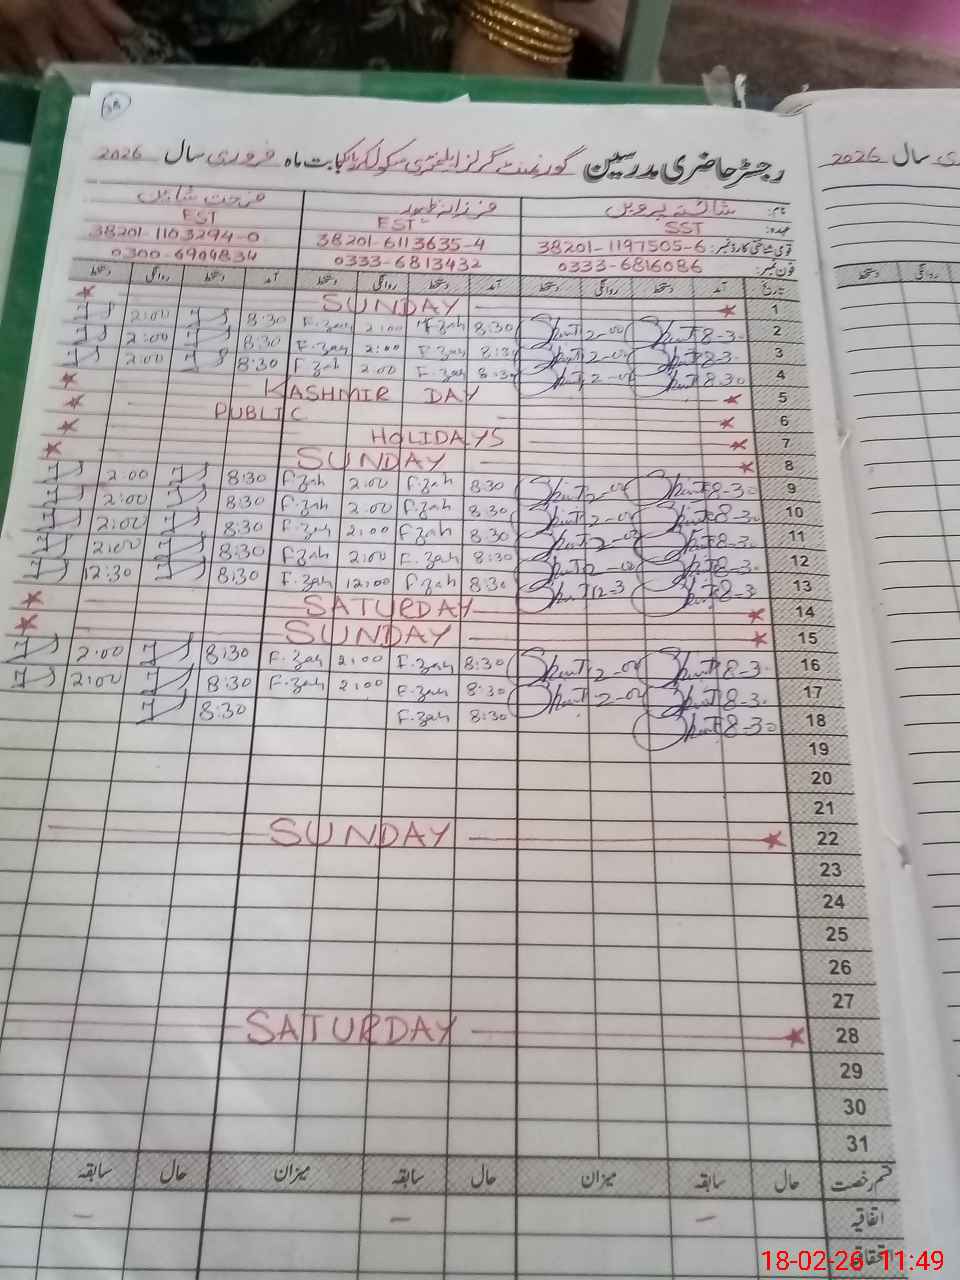 38
رجسٹر حاضری مدرسین گورنمنٹ گرلز ایلمنٹری سکول بابت ماہ فروری سال 2026
سال 2026
نام: شائستہ پروین فرزانہ ظہور فرحت شاہین
عہدہ: SST EST EST
قومی شناختی کارڈ نمبر: 38201-1197505-6 38201-6113635-4 38201-1103294-0
فون نمبر: 0333-6816086 0333-6813432 0300-6904834
تاریخ آمد دستخط روانگی دستخط آمد دستخط روانگی دستخط آمد دستخط روانگی دستخط
روانگی دستخط
1 SUNDAY
2 8-30 2-00 8:30 F.zah 2:00 F.zah 8:30 2:00
3 8-30 2-00 8:30 F.zah 2:00 F.zah 8:30 2:00
4 8-30 2-00 8:30 F.zah 2:00 F.zah 8:30 2:00
5 KASHMIR DAY
6 PUBLIC
7 HOLIDAYS
8 SUNDAY
9 8-30 2-00 8:30 F.zah 2:00 F.zah 8:30 2:00
10 8-30 2-00 8:30 F.zah 2:00 F.zah 8:30 2:00
11 8-30 2-00 8:30 F.zah 2:00 F.zah 8:30 2:00
12 8-30 2-00 8:30 F.zah 2:00 F.zah 8:30 2:00
13 8-30 12-3 8:30 F.zah 12:00 F.zah 8:30 12:30
14 SATURDAY
15 SUNDAY
16 8-30 2-00 8:30 F.zah 2:00 F.zah 8:30 2:00
17 8-30 2-00 8:30 F.zah 2:00 F.zah 8:30 2:00
18 8-30 8:30 F.zah 8:30
19
20
21
22 SUNDAY
23
24
25
26
27
28 SATURDAY
29
30
31
قسم رخصت حال سابقہ میزان حال سابقہ میزان حال سابقہ
اتفاقیہ – – –
18-02-26 11:49